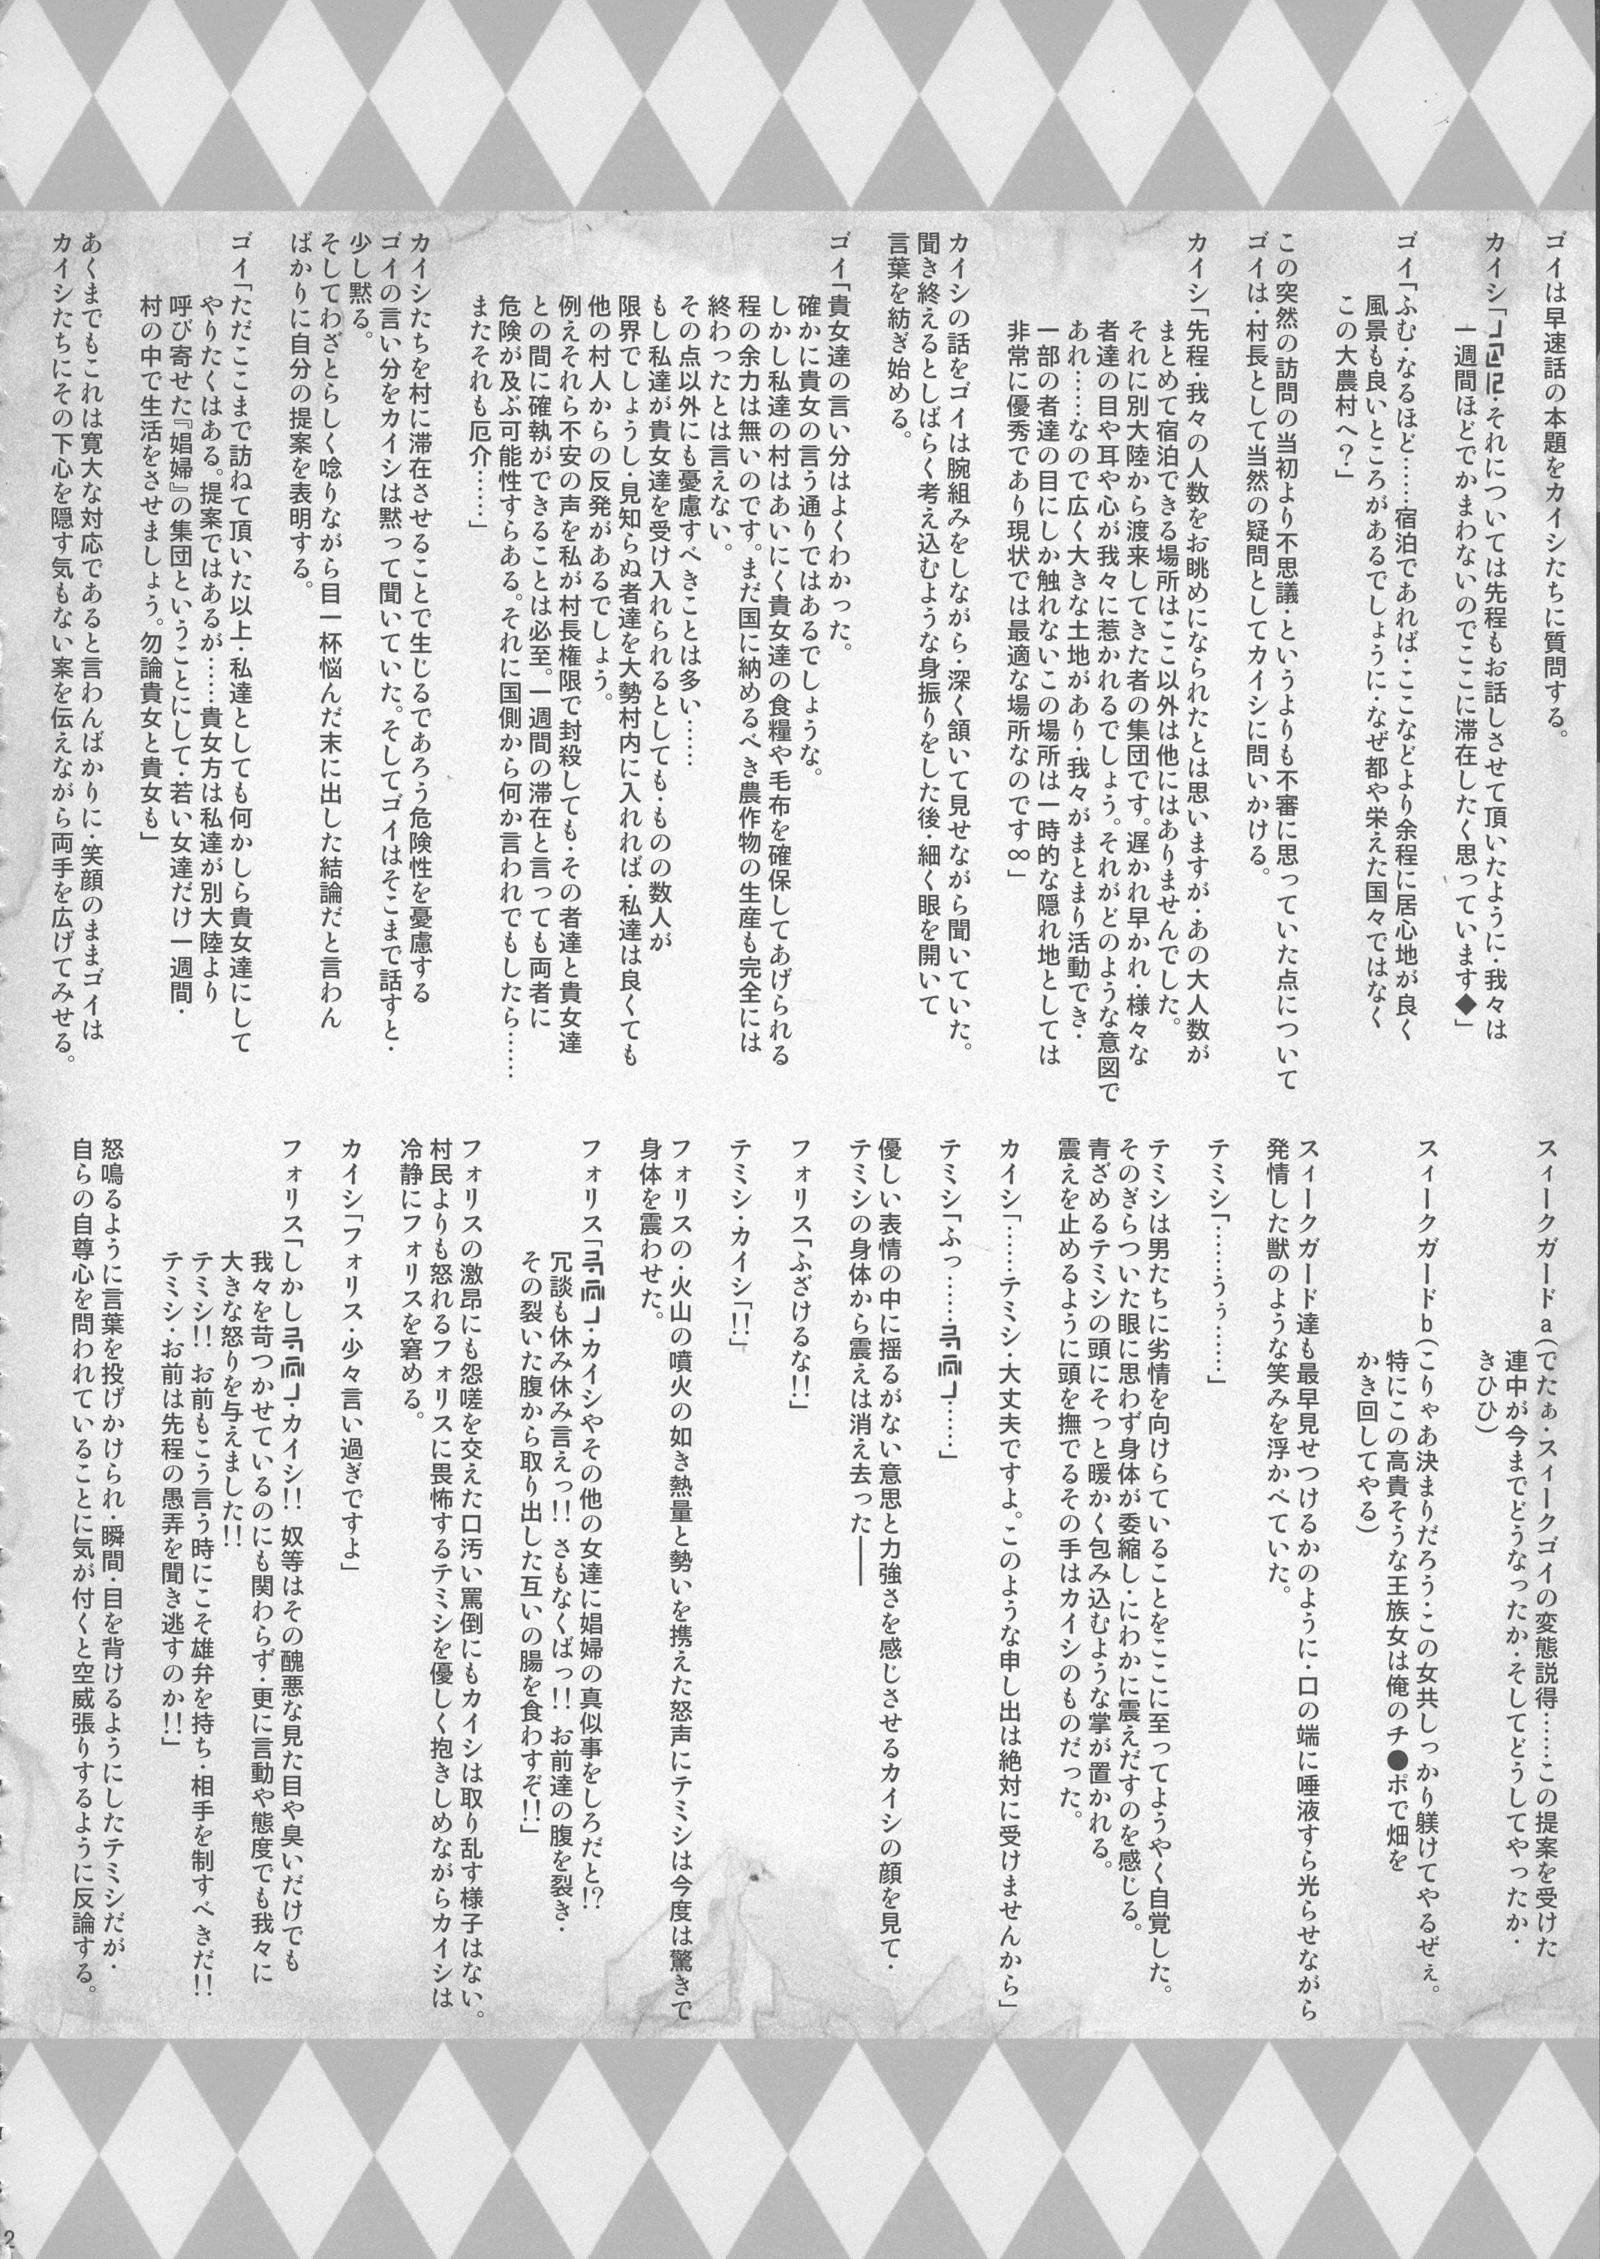 ゴイは早速話の本題をカイシたちに質問する。
カイシ「・それについては先程もお話しさせて頂いたように・我々は
一週間ほどでかまわないのでここに滞在したく思っています◆」
ゴイ「ふむ・なるほど……宿泊であれば・ここなどより余程に居心地が良く
風景も良いところがあるでしょうに・なぜ都や栄えた国々ではなく
この大農村へ?」
この突然の訪問の当初より不思議・というよりも不審に思っていた点について
ゴイは・村長として当然の疑問としてカイシに問いかける。
カイシ「先程・我々の人数をお眺めになられたとは思いますが・あの大人数が
まとめて宿泊できる場所はここ以外は他にはありませんでした。
それに別大陸から渡来してきた者の集団です。遅かれ早かれ・様々な
者達の目や耳や心が我々に惹かれるでしょう。それがどのような意図で
あれ……なので広く大きな土地があり・我々がまとまり活動でき・
一部の者達の目にしか触れないこの場所は一時的な隠れ地としては
非常に優秀であり現状では最適な場所なのです∞」
カイシの話をゴイは腕組みをしながら・深く頷いて見せながら聞いていた。
聞き終えるとしばらく考え込むような身振りをした後・細く眼を開いて
言葉を紡ぎ始める。
ゴイ「貴女達の言い分はよくわかった。
確かに貴女の言う通りではあるでしょうな。
しかし私達の村はあいにく貴女達の食糧や毛布を確保してあげられる
程の余力は無いのです。まだ国に納めるべき農作物の生産も完全には
終わったとは言えない。
その点以外にも憂慮すべきことは多い……
もし私達が貴女達を受け入れられるとしても・ものの数人が
限界でしょうし・見知らぬ者達を大勢村内に入れれば・私達は良くても
他の村人からの反発があるでしょう。
例えそれら不安の声を私が村長権限で封殺しても・その者達と貴女達
との間に確執ができることは必至。一週間の滞在と言っても両者に
危険が及ぶ可能性すらある。それに国側から何か言われでもしたら……
またそれも厄介……」
カイシたちを村に滞在させることで生じるであろう危険性を憂慮する
ゴイの言い分をカイシは黙って聞いていた。そしてゴイはそこまで話すと・
少し黙る。
そしてわざとらしく唸りながら目一杯悩んだ末に出した結論だと言わん
ばかりに自分の提案を表明する。
ゴイ「ただここまで訪ねて頂いた以上・私達としても何かしら貴女達にして
やりたくはある。提案ではあるが……貴女方は私達が別大陸より
呼び寄せた『娼婦』の集団ということにして・若い女達だけ一週間・
村の中で生活をさせましょう。勿論貴女と貴女も」
あくまでもこれは寛大な対応であると言わんばかりに・笑顔のままゴイは
カイシたちにその下心を隠す気もない案を伝えながら両手を広げてみせる。
スィークガードa(でたぁ・スィークゴイの変態説得……この提案を受けた
連中が今までどうなったか・そしてどうしてやったか・
きひひ)
スィークガードb(こりゃあ決まりだろう・この女共しっかり躾けてやるぜぇ。
特にこの高貴そうな王族女は俺のチ●ポで畑を
かき回してやる)
スィークガード達も最早見せつけるかのように・口の端に唾液すら光らせながら
発情した獣のような笑みを浮かべていた。
テミシ「……うぅ……」
テミシは男たちに劣情を向けらていることをここに至ってようやく自覚した。
そのぎらついた眼に思わず身体が委縮し・にわかに震えだすのを感じる。
青ざめるテミシの頭にそっと暖かく包み込むような掌が置かれる。
震えを止めるように頭を撫でるその手はカイシのものだった。
カイシ「……テミシ・大丈夫ですよ。このような申し出は絶対に受けませんから」
テミシ「ふっ…………」
優しい表情の中に揺るがない意思と力強さを感じさせるカイシの顔を見て・
テミシの身体から震えは消え去った――
フォリス「ふざけるな!!」
テミシ・カイシ「!!」
フォリスの・火山の噴火の如き熱量と勢いを携えた怒声にテミシは今度は驚きで
身体を震わせた。
フォリス「・カイシやその他の女達に娼婦の真似事をしろだと!?
冗談も休み休み言えっ!! さもなくばっ!! お前達の腹を裂き・
その裂いた腹から取り出した互いの腸を食わすぞ!!」
フォリスの激昂にも怨嗟を交えた口汚い罵倒にもカイシは取り乱す様子はない。
村民よりも怒れるフォリスに畏怖するテミシを優しく抱きしめながらカイシは
冷静にフォリスを窘める。
カイシ「フォリス・少々言い過ぎですよ」
フォリス「しかし・カイシ!! 奴等はその醜悪な見た目や臭いだけでも
我々を苛つかせているのにも関わらず・更に言動や態度でも我々に
大きな怒りを与えました!!
テミシ!! お前もこう言う時にこそ雄弁を持ち・相手を制すべきだ!!
テミシ・お前は先程の愚弄を聞き逃すのか!!」
怒鳴るように言葉を投げかけられ・瞬間・目を背けるようにしたテミシだが・
自らの自尊心を問われていることに気が付くと空威張りするように反論する。
2